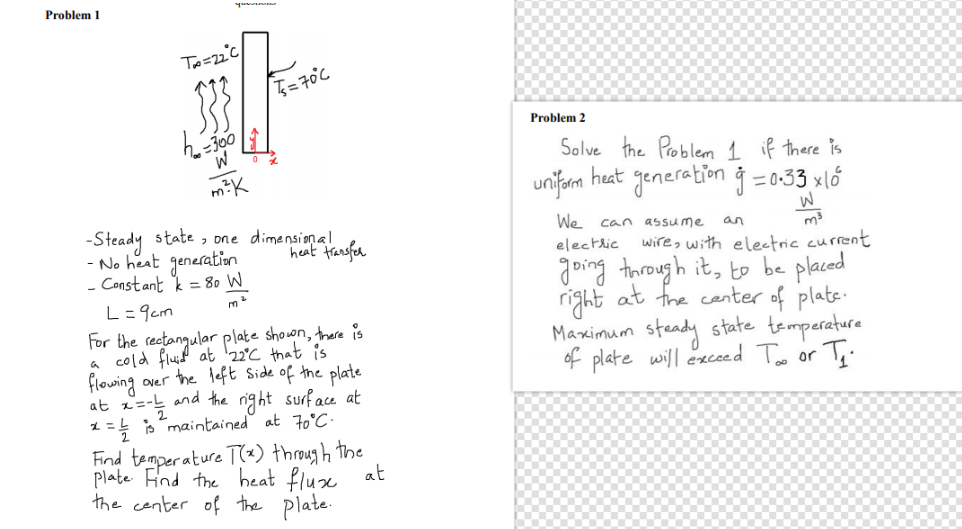 Problem 1
T∞=22°C
Ts=70°C
h∞=300
W
m²K
0
x
-Steady state, one dimensional
heat transfer
- No heat generation
- Constant k = 80 W
m²
L = 9cm
For the rectangular plate shown, there is
a cold fluid at 22°C that is
flowing over the left side of the plate
at x=-L/2 and the right surface at
x = L/2 is maintained at 70°C.
Find temperature T(x) through the
plate. Find the heat flux at
the center of the plate.
Problem 2
Solve the Problem 1 if there is
uniform heat generation q̇ = 0.33 x10⁶
W
m³
We can assume an
electric wire, with electric current
going through it, to be placed
right at the center of plate.
Maximum steady state temperature
of plate will exceed T∞ or T₁.